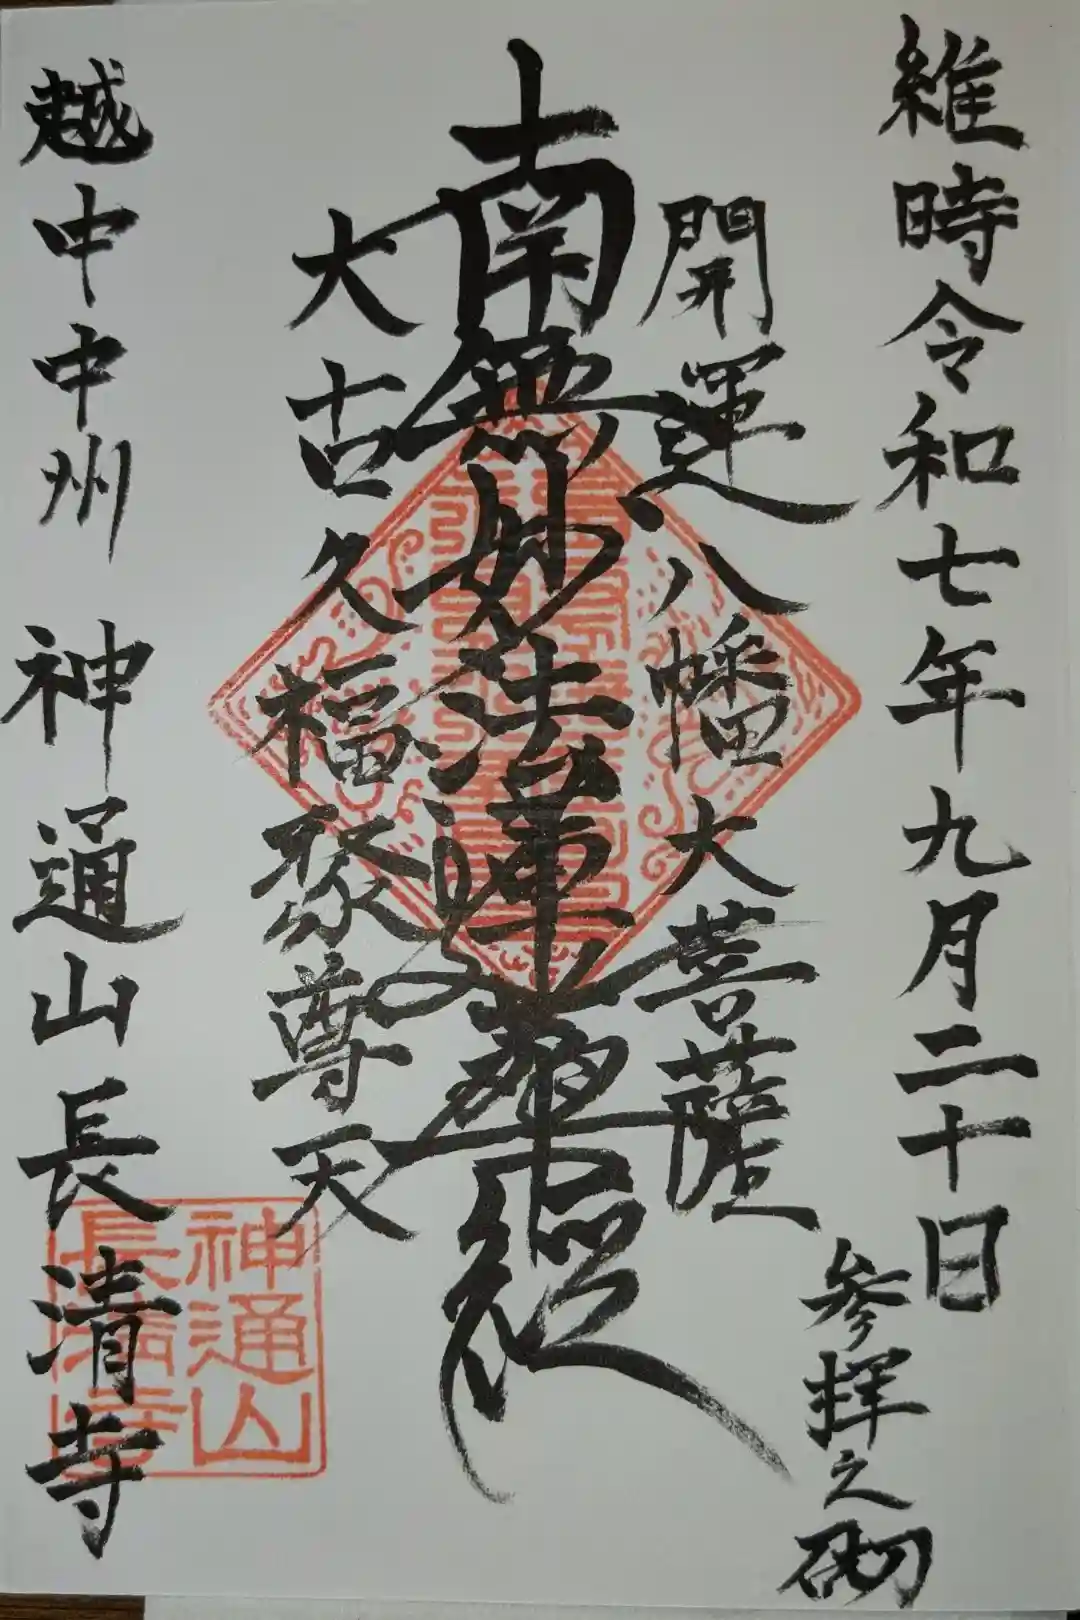 維時令和七年九月二十日
参拝之砌
開運八幡大菩薩
南無妙法蓮華経
大古久福聚尊天
越中中州 神通山長清寺
神通山
長清寺